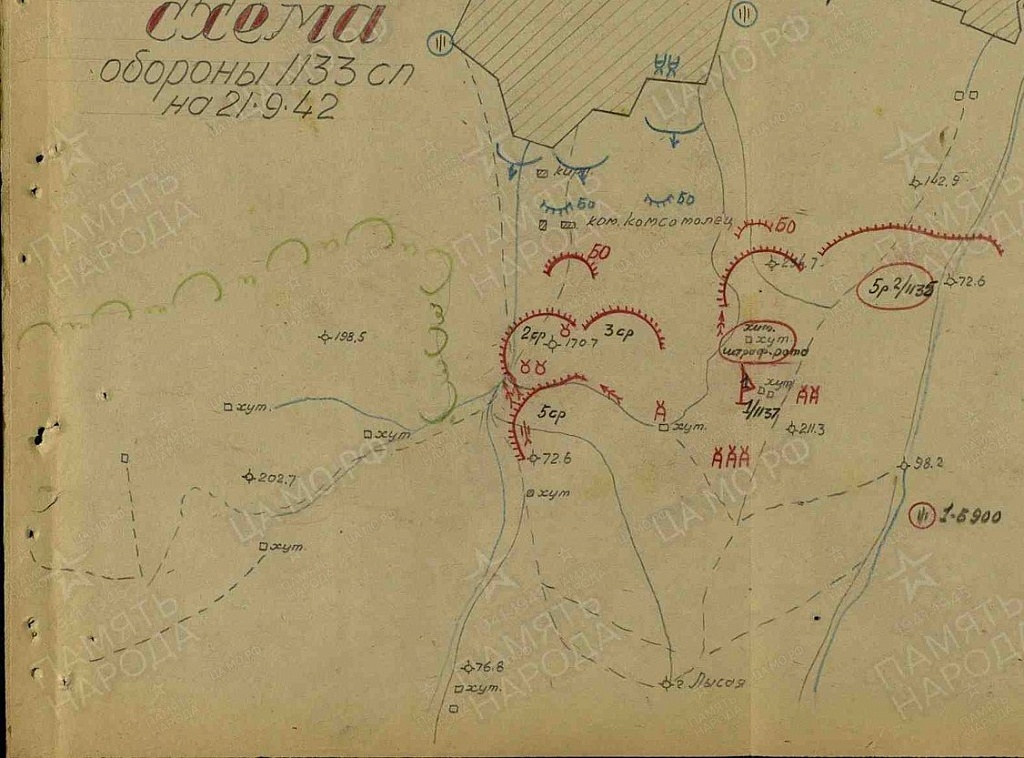 схема
обороны 1133 сп
на 21·9·42
142.9
кирп.
БО
БО
ком. комсомолец
БО
БО
72.6
5р 2/1135
198.5
2ср
170.7
3ср
хим.
хут
штраф.рота
хут
1/1137
хут.
5ср
хут.
хут
211.3
72.6
98.2
202.7
хут
1-5900
хут.
76.8
хут.
г Лысая
ПАМЯТЬ НАРОДА
ЦАМО РФ